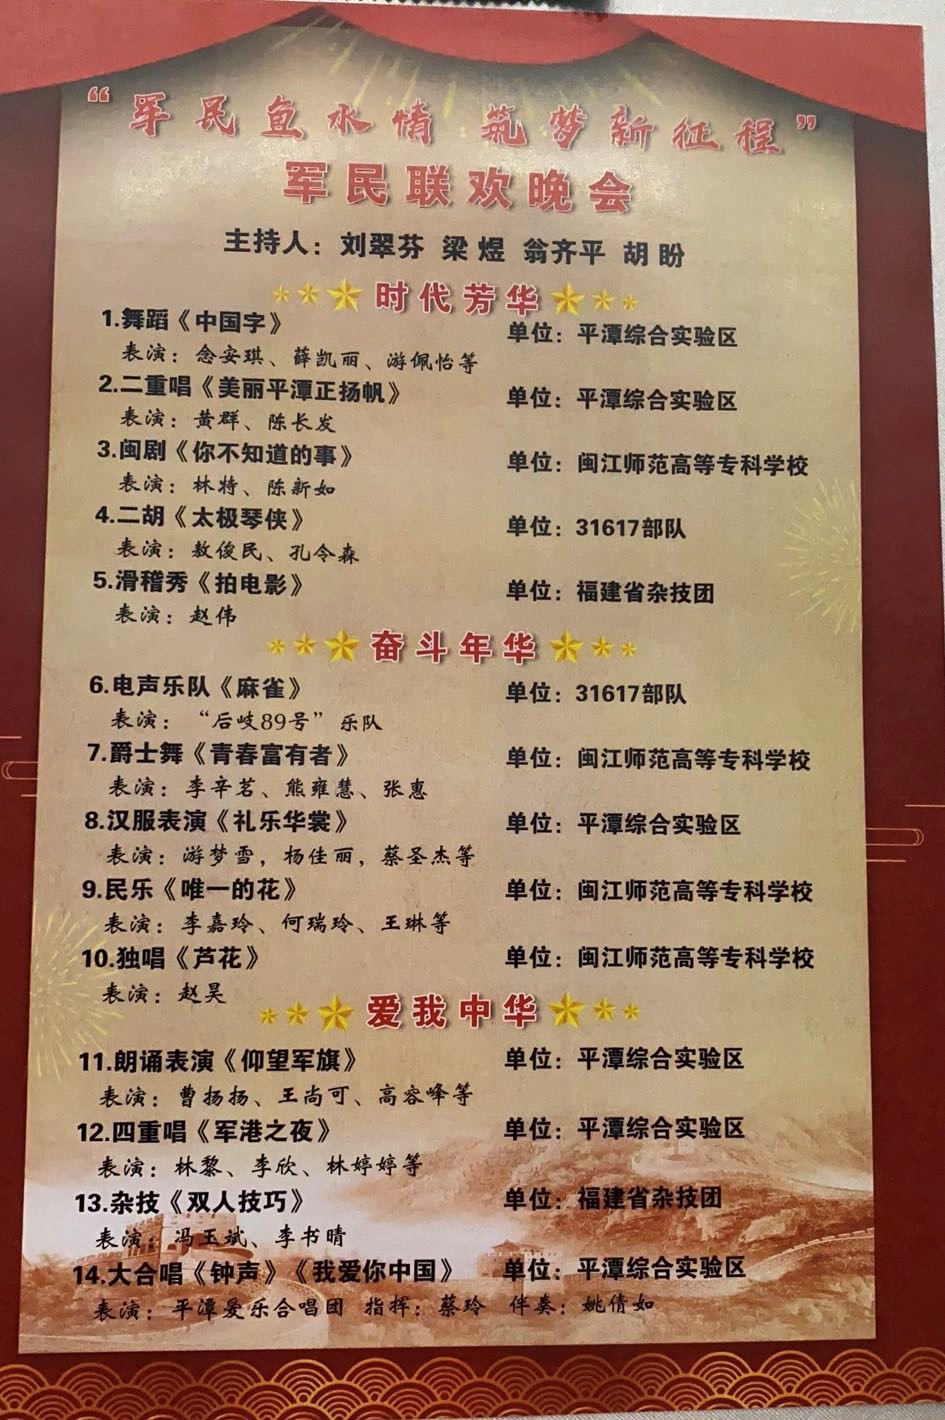 “军民鱼水情 筑梦新征程”
军民联欢晚会
主持人：刘翠芬 梁煜 翁齐平 胡盼
时代芳华
1.舞蹈《中国字》 单位：平潭综合实验区
表演：念安琪、薛凯丽、游佩怡等
2.二重唱《美丽平潭正扬帆》 单位：平潭综合实验区
表演：黄群、陈长发
3.闽剧《你不知道的事》 单位：闽江师范高等专科学校
表演：林特、陈新如
4.二胡《太极琴侠》 单位：31617部队
表演：敖俊民、孔令森
5.滑稽秀《拍电影》 单位：福建省杂技团
表演：赵伟
奋斗年华
6.电声乐队《麻雀》 单位：31617部队
表演：“后岐89号”乐队
7.爵士舞《青春富有者》 单位：闽江师范高等专科学校
表演：李辛茗、熊雍慧、张惠
8.汉服表演《礼乐华裳》 单位：平潭综合实验区
表演：游梦雪，杨佳丽，蔡圣杰等
9.民乐《唯一的花》 单位：闽江师范高等专科学校
表演：李嘉玲、何瑞玲、王琳等
10.独唱《芦花》 单位：闽江师范高等专科学校
表演：赵昊
爱我中华
11.朗诵表演《仰望军旗》 单位：平潭综合实验区
表演：曹扬扬、王尚可、高容峰等
12.四重唱《军港之夜》 单位：平潭综合实验区
表演：林黎、李欣、林婷婷等
13.杂技《双人技巧》 单位：福建省杂技团
表演：冯玉斌、李书晴
14.大合唱《钟声》《我爱你中国》 单位：平潭综合实验区
表演：平潭爱乐合唱团 指挥：蔡玲 伴奏：姚倩如